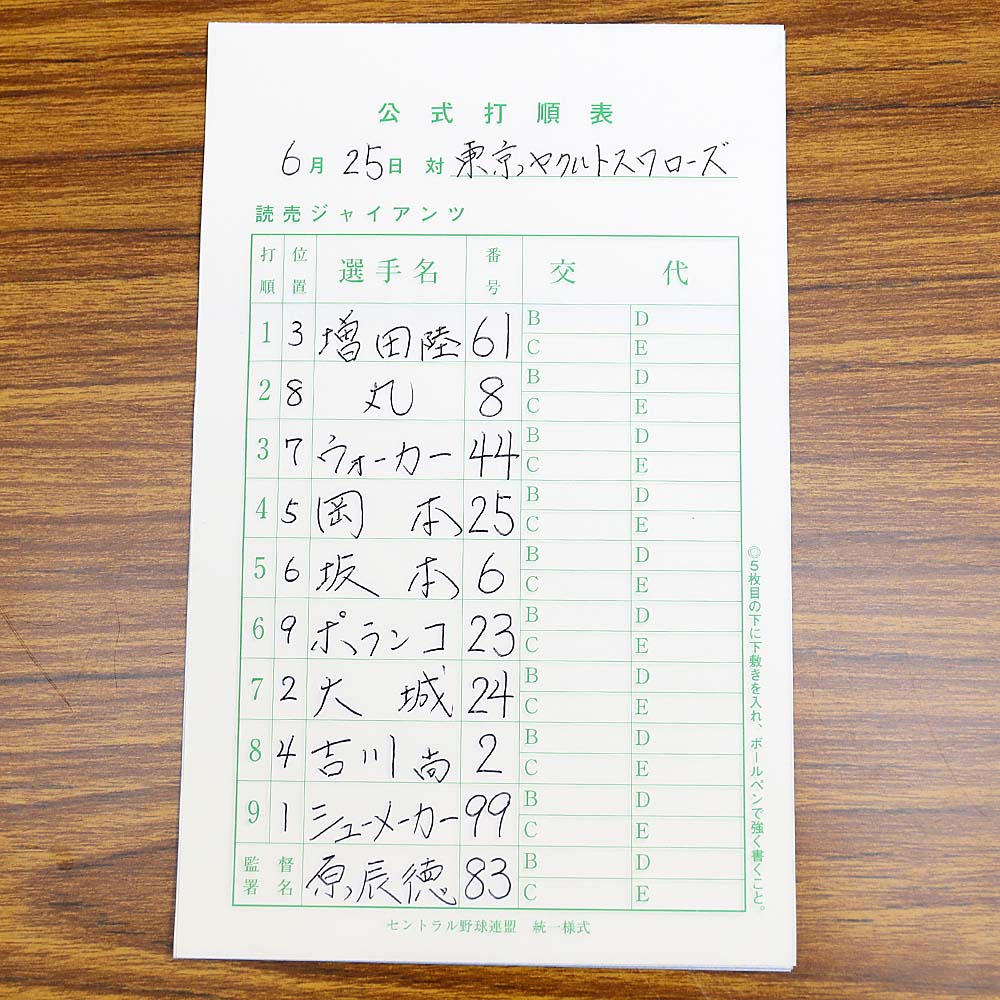 公式打順表
6月25日 対 東京ヤクルトスワローズ
読売ジャイアンツ
打順 位置 選手名 番号 交代
1 3 増田陸 61 B D C E
2 8 丸 8 B D C E
3 7 ウォーカー 44 B D C E
4 5 岡本 25 B D C E
5 6 坂本 6 B D C E
6 9 ポランコ 23 B D C E
7 2 大城 24 B D C E
8 4 吉川尚 2 B D C E
9 1 シューメーカー 99 B D C E
監督署名 原辰徳 83 B D C E
◎5枚目の下に下敷きを入れ、ボールペンで強く書くこと。
セントラル野球連盟 統一様式